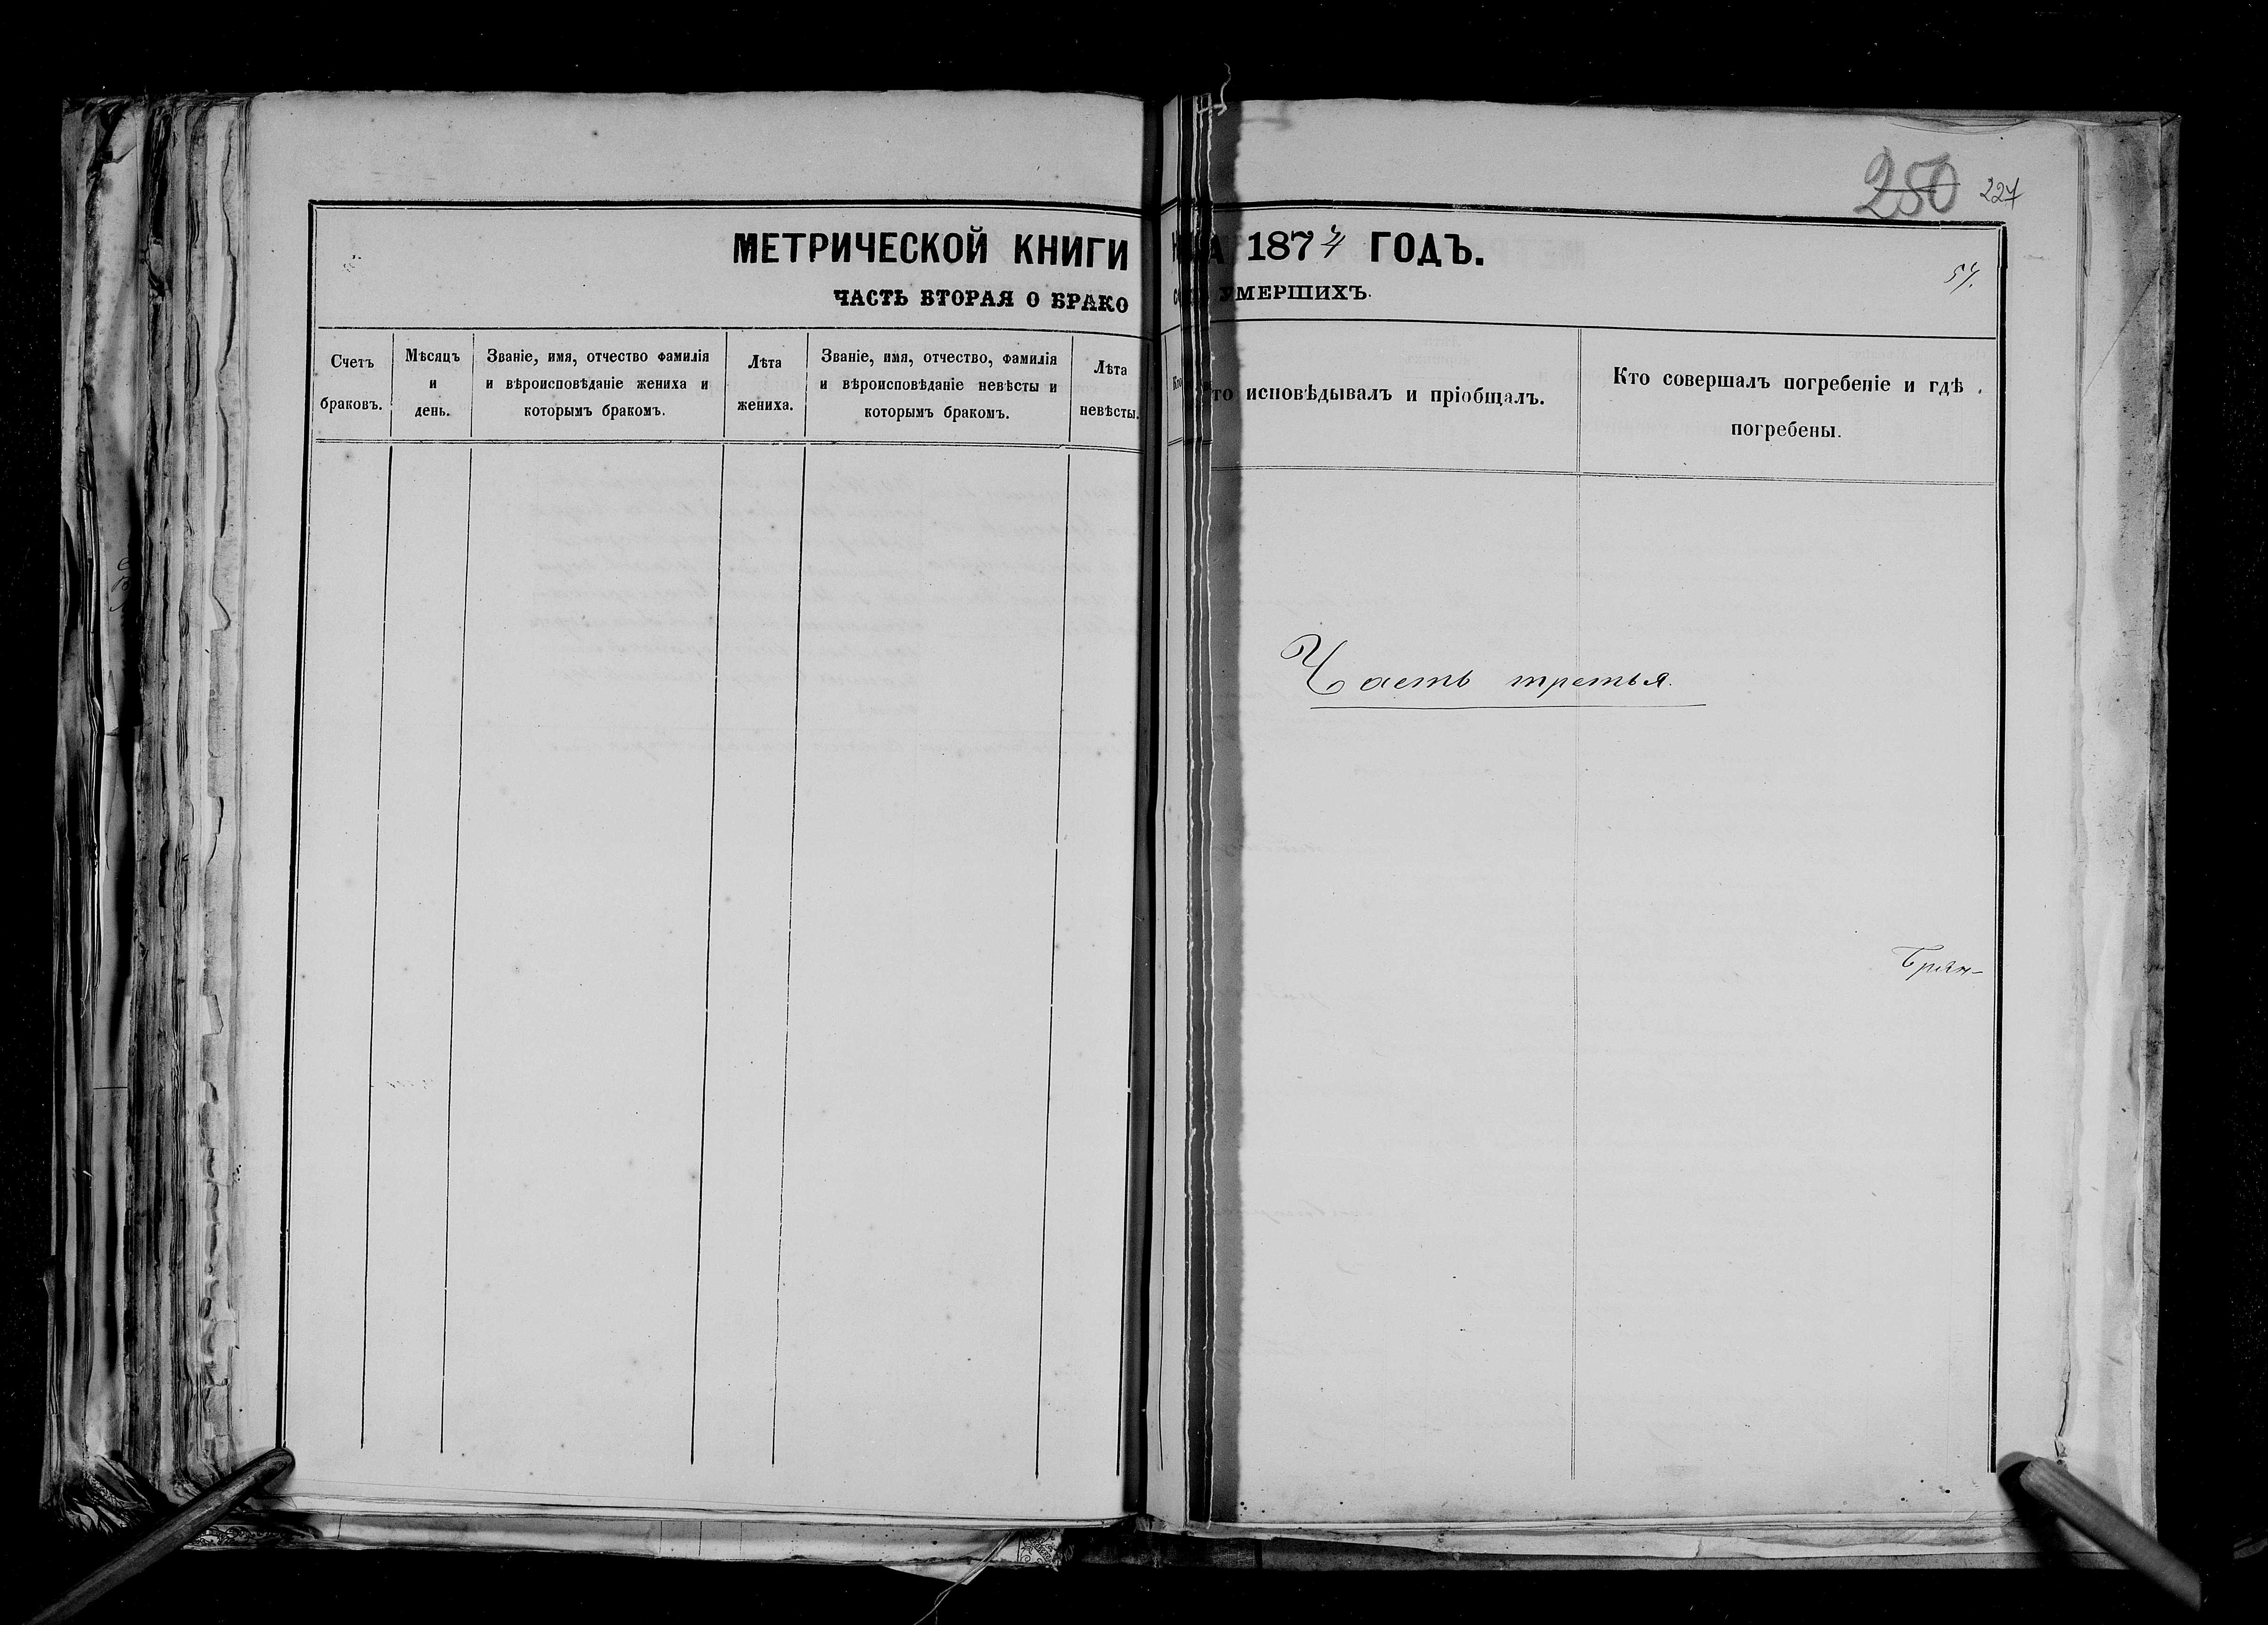 МЕТРИЧЕСКОЙ КНИГИ
ЧАСТЬ ВТОРАЯ О БРАКО
Счетъ браковъ.
Мѣсяцъ и день.
Званіе, имя, отчество фамилія и вѣроисповѣданіе жениха и которымъ бракомъ.
Лѣта жениха.
Званіе, имя, отчество, фамилія и вѣроисповѣданіе невѣсты и которымъ бракомъ.
Лѣта невѣсты.
250 227
А 1874 ГОДЪ.
57.
УМЕРШИХЪ.
то исповѣдывалъ и пріобщалъ.
Кто совершалъ погребеніе и гдѣ погребены.
Часть третья.